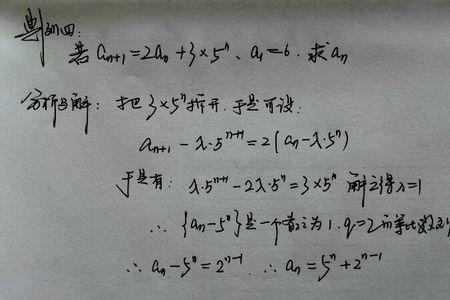 典例四:
若 aₙ₊₁=2aₙ+3×5ⁿ、a₁=6. 求aₙ
分析与解: 把3×5ⁿ拆开.于是可设:
aₙ₊₁-λ·5ⁿ⁺¹=2(aₙ-λ·5ⁿ)
于是有: λ·5ⁿ⁺¹-2λ·5ⁿ=3×5ⁿ 解之得λ=1
∴ {aₙ-5ⁿ}是一个首项为1.q=2的等比数列
∴ aₙ-5ⁿ=2ⁿ⁻¹ ∴ aₙ=5ⁿ+2ⁿ⁻¹